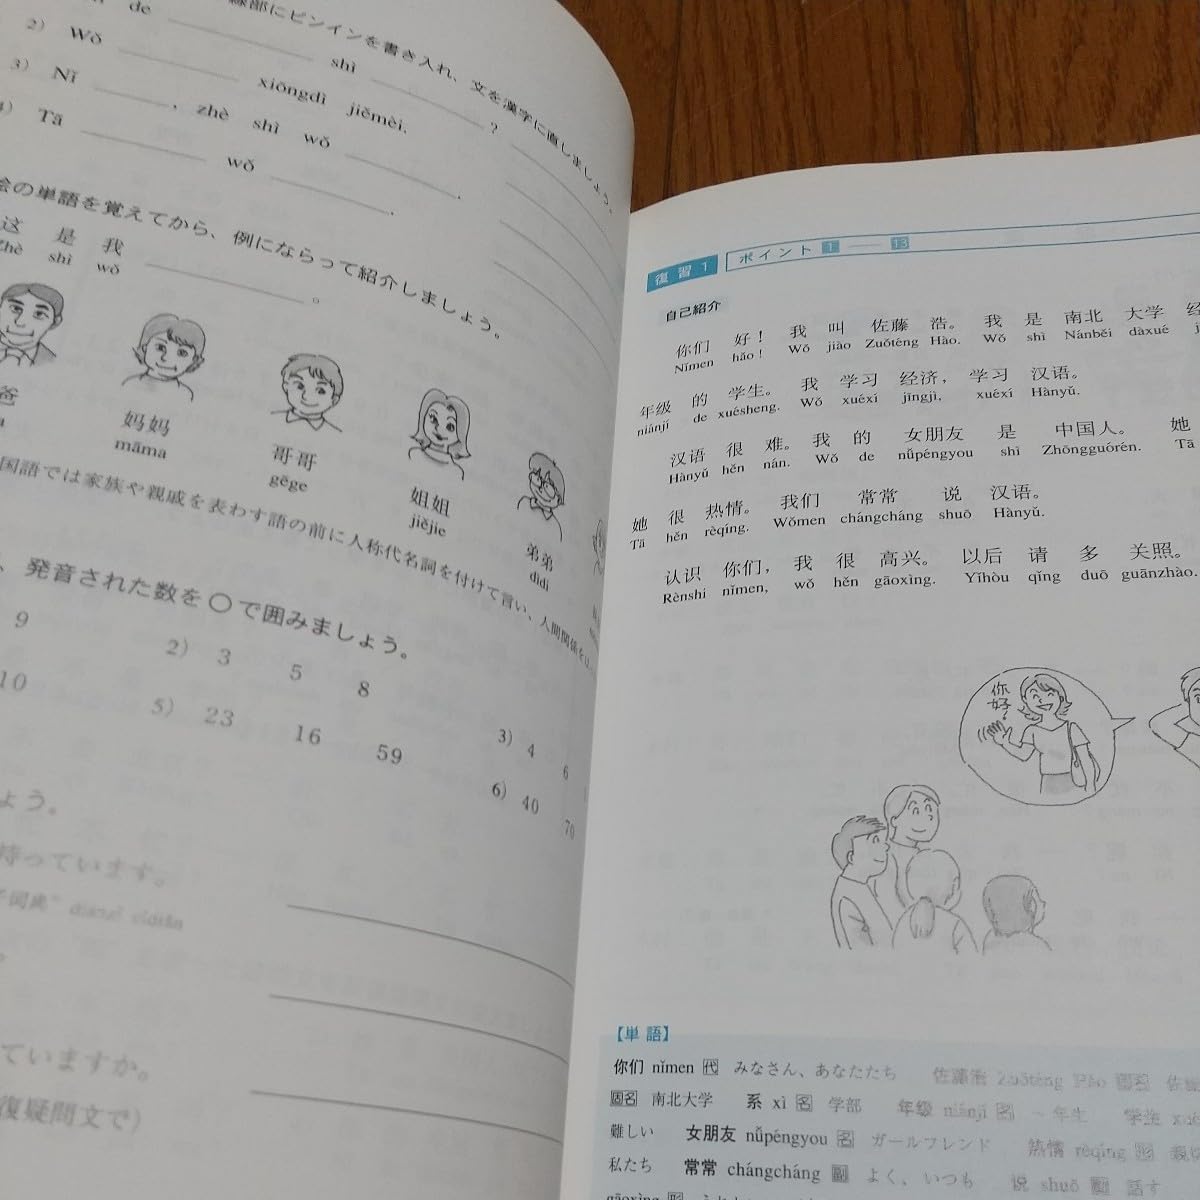 de ＿ shì ＿ ?
線部にピンインを書き入れ、文を漢字に直しましょう。
2) Wǒ ＿ xiōngdì jiěmèi.
3) Nǐ ＿, zhè shì wǒ ＿.
4) Tā ＿ wǒ ＿.
絵の単語を覚えてから、例にならって紹介しましょう。
这 是 我 ＿。
Zhè shì wǒ
爸
妈妈
māma
哥哥
gēge
姐姐
jiějie
弟弟
dìdi
国語では家族や親戚を表わす語の前に人称代名詞を付けて言い、人間関係を
、発音された数を○で囲みましょう。
9
2) 3 5 8
3) 4 6
10
5) 23 16 59
6) 40 70
ょう。
持っています。
ていますか。
復疑問文で)
復習1 ポイント 1 — 13
自己紹介
你们 好！ 我 叫 佐藤 浩。 我 是 南北 大学 经
Nǐmen hǎo! Wǒ jiào Zuǒténg Hào. Wǒ shì Nánběi dàxué j
年级 的 学生。 我 学习 经济， 学习 汉语。
niánjí de xuésheng. Wǒ xuéxí jīngjì, xuéxí Hànyǔ.
汉语 很 难。 我 的 女朋友 是 中国人。 她
Hànyǔ hěn nán. Wǒ de nǚpéngyou shì Zhōngguórén. Tā
她 很 热情。 我们 常常 说 汉语。
Tā hěn rèqíng. Wǒmen chángcháng shuō Hànyǔ.
认识 你们， 我 很 高兴。 以后 请 多 关照。
Rènshi nǐmen, wǒ hěn gāoxìng. Yǐhòu qǐng duō guānzhào.
你好！
【単語】
你们 nǐmen 代 みなさん、あなたたち 佐藤浩 Zuǒténg Hào 固名 佐
固名 南北大学 系 xì 名 学部 年级 niánjí 名 ～年生 学生
難しい 女朋友 nǚpéngyou 名 ガールフレンド 热情 rèqíng 形 親
私たち 常常 chángcháng 副 よく、いつも 说 shuō 動 話す
gāoxìng 形